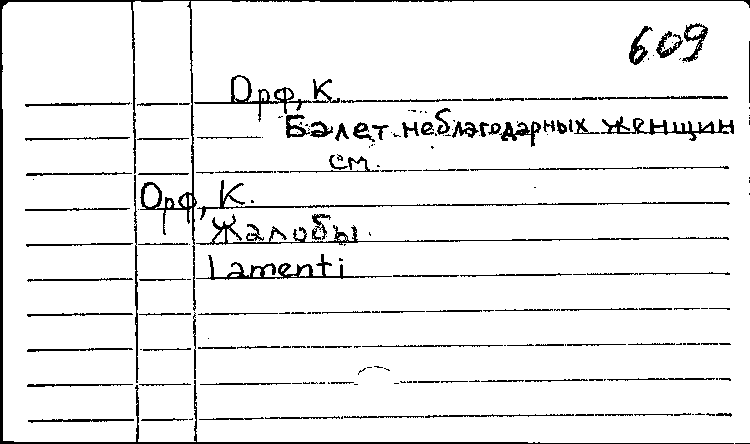 609
Орф, К.
Балет неблагодарных женщин
см.
Орф, К.
Жалобы.
Lamenti